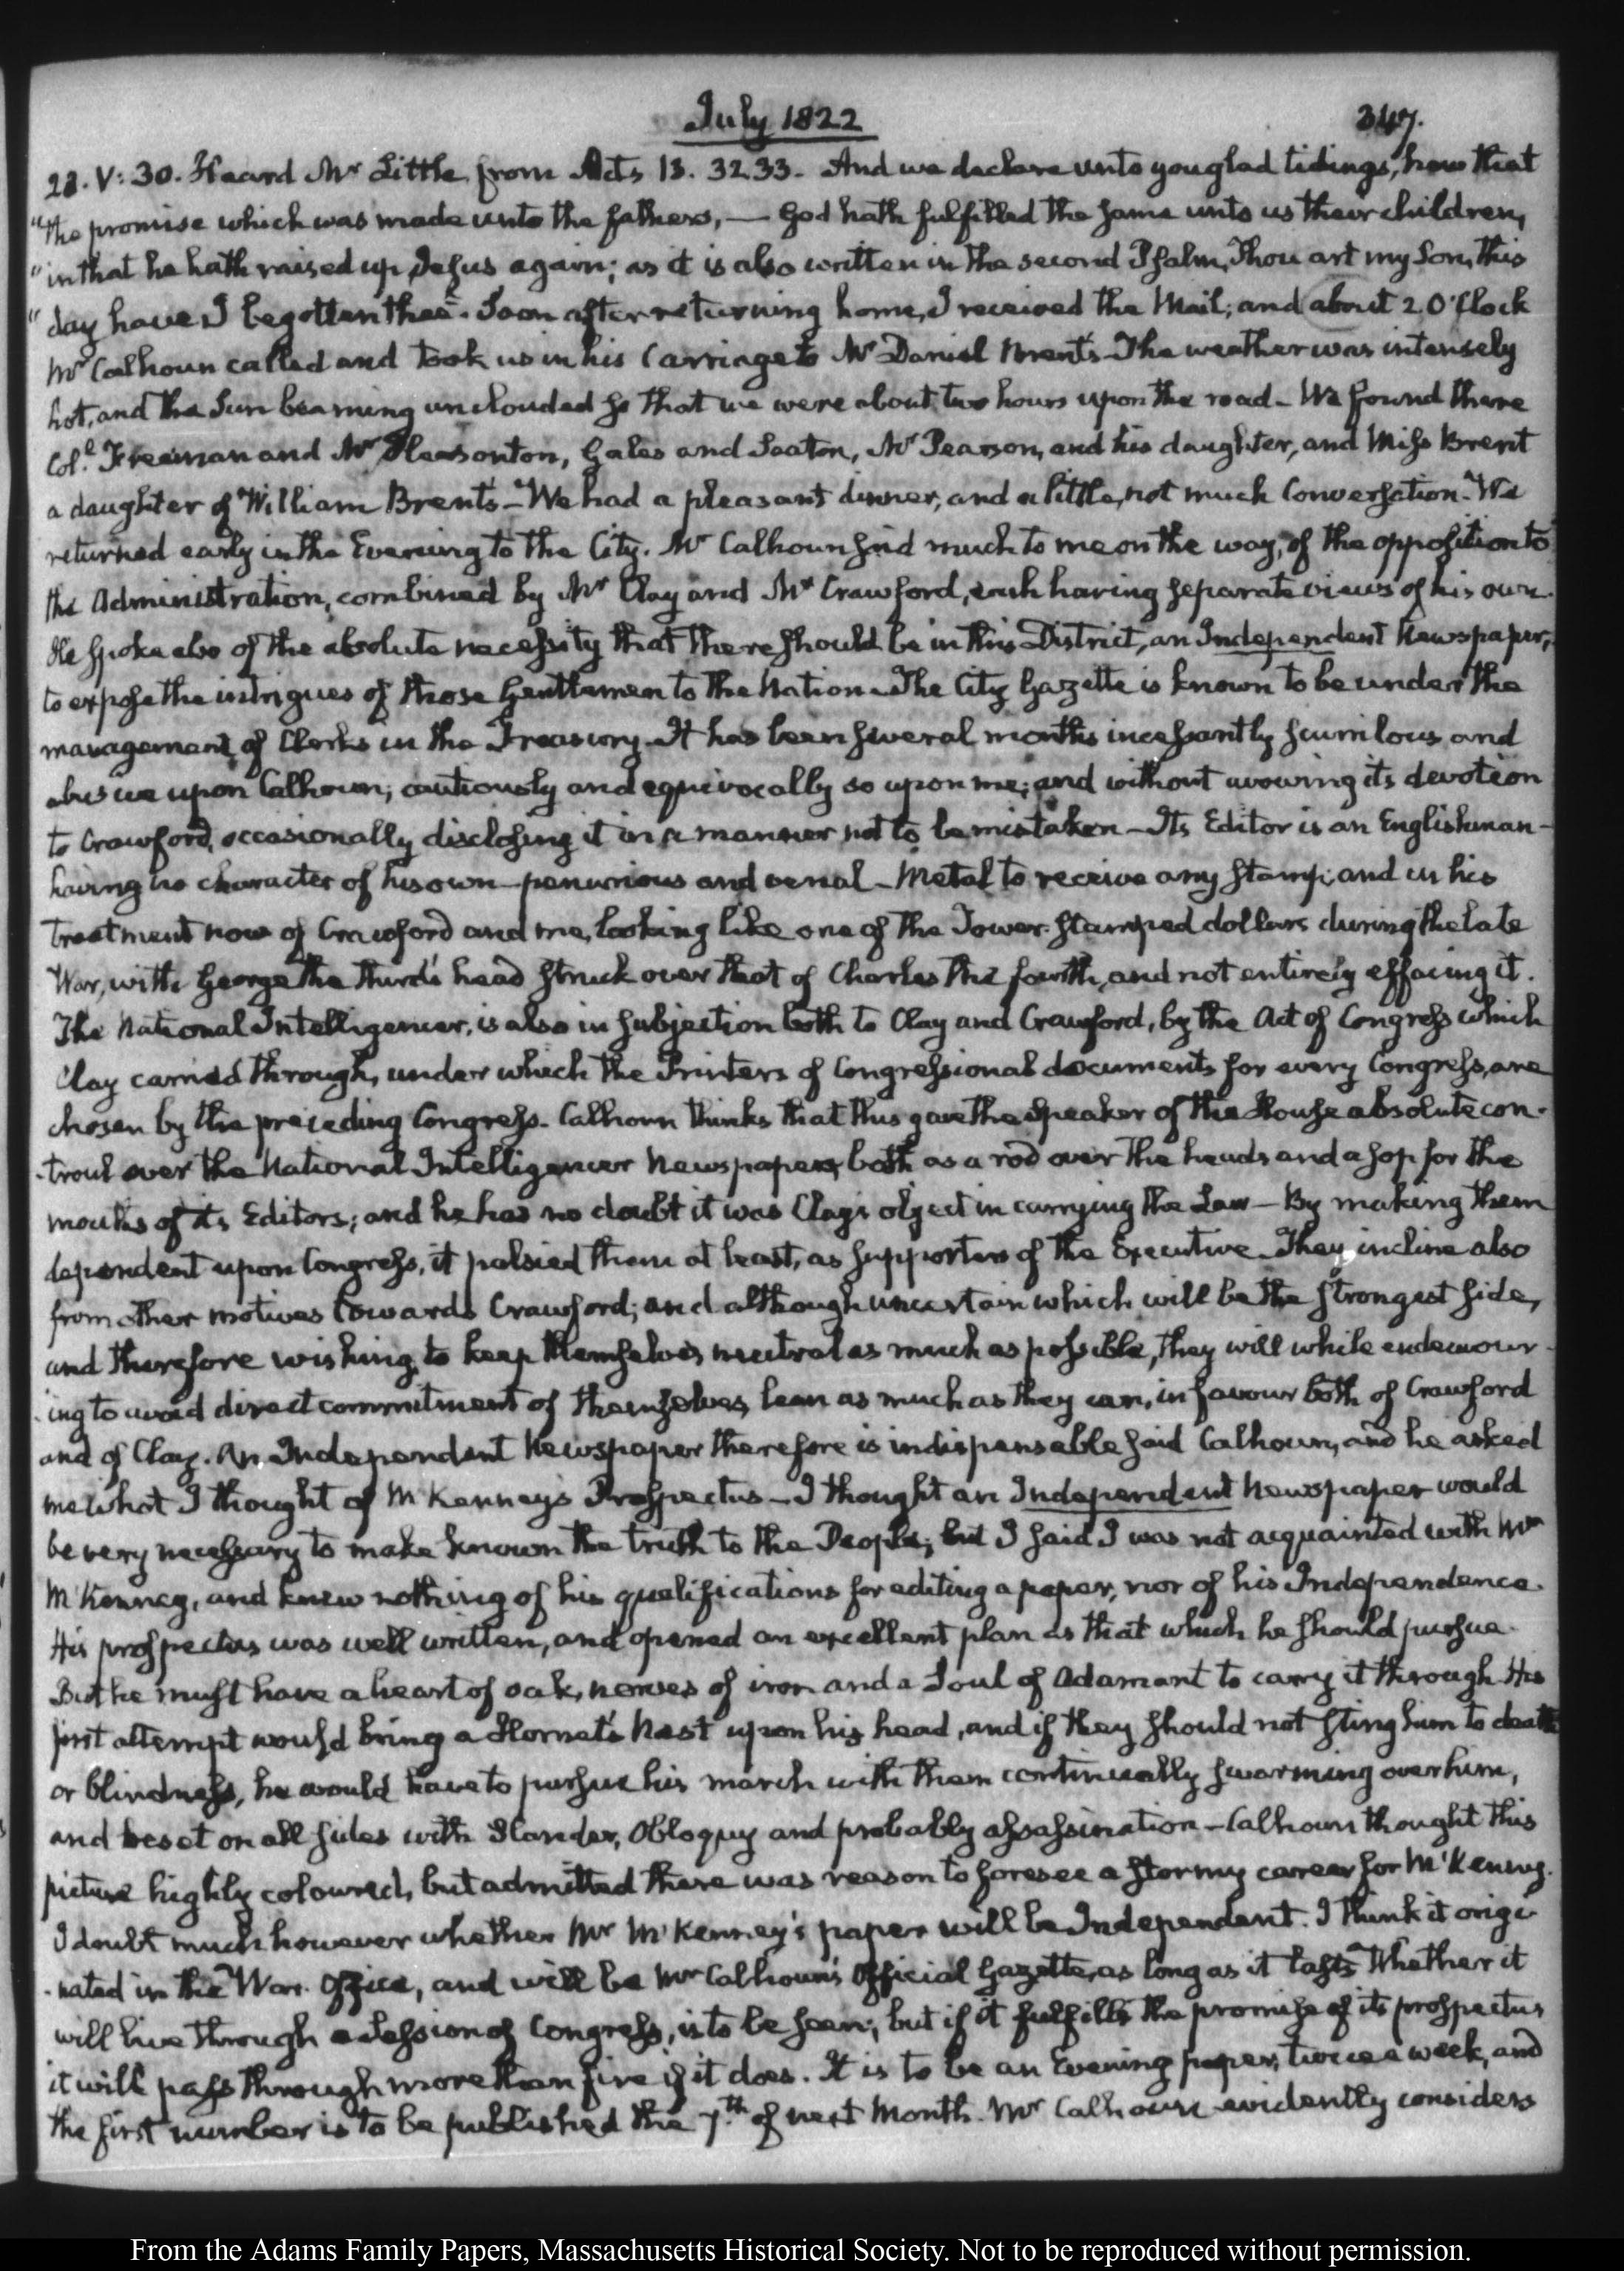 July 1822
347.
28. V: 30. Heard Mr Little from Acts 13. 32.33. And we declare unto you glad tidings, how that
"the promise which was made unto the fathers, — God hath fulfilled the same unto us their children,
"in that he hath raised up Jesus again; as it is also written in the second Psalm, Thou art my Son, this
"day have I begotten thee." Soon after returning home, I received the Mail; and about 2 O'Clock
Mr Calhoun called and took us in his Carriage to Mr Daniel Brent's. The weather was intensely
hot, and the Sun beaming unclouded so that we were about two hours upon the road — We found there
Col.l Freeman and Mr Pleasonton, Gales and Seaton, Mr Pearson, and his daughter, and Miss Brent
a daughter of William Brent's — We had a pleasant dinner, and a little, not much Conversation. We
returned early in the Evening to the City. Mr Calhoun said much to me on the way, of the opposition to
the Administration, combined by Mr Clay and Mr Crawford, each having separate views of his own.
He spoke also of the absolute necessity that there should be in this District, an Independent Newspaper,
to expose the intrigues of those Gentlemen to the Nation. The City Gazette is known to be under the
management of Clerks in the Treasury. It has been several months incessantly scurrilous and
abusive upon Calhoun; cautiously and equivocally so upon me; and without avowing its devotion
to Crawford, occasionally disclosing it in a manner not to be mistaken — Its Editor is an Englishman —
having no character of his own — penurious and venal — Metal to receive any stamp; and in his
treatment now of Crawford and me, looking like one of the Tower-stamped dollars during the late
War, with George the third's head struck over that of Charles the fourth, and not entirely effacing it.
The National Intelligencer, is also in subjection both to Clay and Crawford, by the Act of Congress which
Clay carried through, under which the Printers of Congressional documents for every Congress, are
chosen by the preceding Congress. Calhoun thinks that this gave the Speaker of the House absolute con-
-troul over the National Intelligencer Newspaper, both as a rod over the heads and a sop for the
mouths of its Editors; and he has no doubt it was Clay's object in carrying the Law — By making them
dependent upon Congress, it palsied them at least, as supporters of the Executive. They incline also
from other motives towards Crawford; and although uncertain which will be the strongest side,
and therefore wishing to keep themselves neutral as much as possible, they will while endeavour-
-ing to avoid direct commitment of themselves, lean as much as they can, in favour both of Crawford
and of Clay. An Independent Newspaper therefore is indispensable said Calhoun, and he asked
me what I thought of McKenney's Prospectus — I thought an Independent Newspaper would
be very necessary to make known the truth to the People; but I said I was not acquainted with Mr
McKenney, and knew nothing of his qualifications for editing a paper, nor of his Independence.
His prospectus was well written, and opened an excellent plan as that which he should pursue.
But he must have a heart of oak, nerves of iron and a Soul of Adamant to carry it through. His
first attempt would bring a Hornet's Nest upon his head, and if they should not sting him to death
or blindness, he would have to pursue his march with them continually swarming over him,
and beset on all sides with Slander, Obloquy and probably assassination — Calhoun thought this
picture highly coloured, but admitted there was reason to foresee a stormy career for McKenney.
I doubt much however whether Mr McKenney's paper will be Independent. I think it origi-
-nated in the War Office, and will be Mr Calhoun's Official Gazette, as long as it lasts. Whether it
will live through a Session of Congress, is to be seen; but if it fulfills the promise of its prospectus
it will pass through more than fire if it does. It is to be an Evening paper, twice a week, and
the first number is to be published the 7th of next Month. Mr Calhoun evidently considers
From the Adams Family Papers, Massachusetts Historical Society. Not to be reproduced without permission.